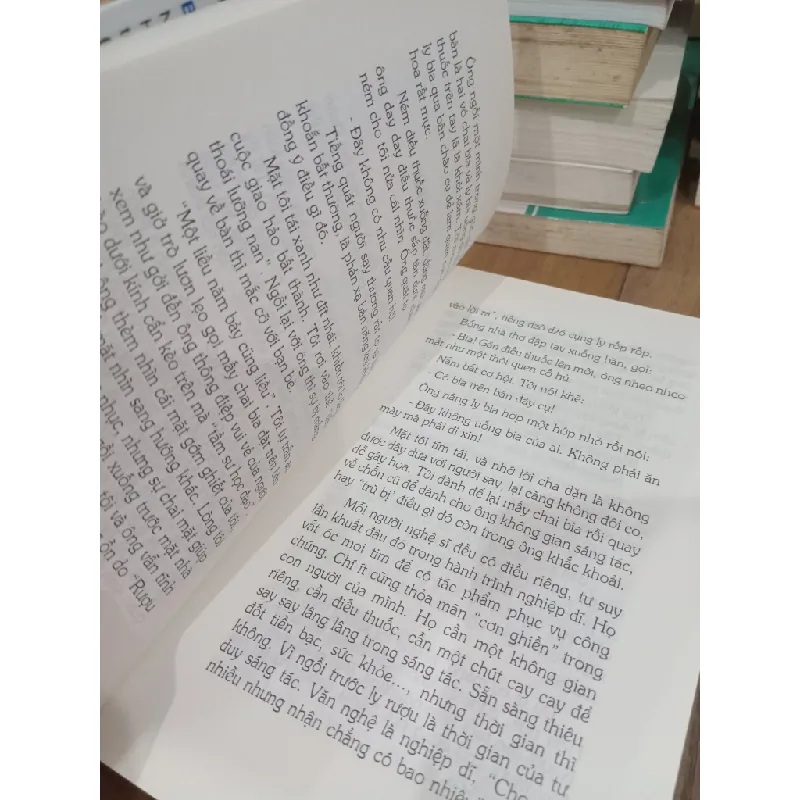 Ông ngồi một mình trong góc
bên là hai vỏ chai bia và ly bia
thuốc trên tay là là khói xám.
ly bia qua bàn cháu cụ để làm quen
hoa rất mực.
Ném điếu thuốc xuống đất, dùng
ông day day điếu thuốc sắp tàn dưới
ném cho tôi nửa cái nhìn. Ông quát to
- Đây không có nhu cầu quen
Tiếng quát người say thường rất to
khoắn bất thường, là phản xạ bản năng
đồng ý điều gì đó.
Mặt tôi tái xanh như đít nhái, khiến thi sĩ
cuộc giao hảo bất thành. Tôi rơi vào
thoái lưỡng nan". Ngồi lại với ông thì sự tự
quay về bàn thì mắc cỡ với bạn bè.
"Một liều năm bảy cũng liều". Tôi tự nhấn
và giở trò lươn lẹo gọi mấy chai bia đặt trên
xem như gởi đến ông thông điệp vui vẻ của người
dưới kính cẩn kéo trên mà "tầm sư học đạo".
thèm nhìn cái mặt gớm ghiết của tôi,
mặt nhìn sang hướng khác. Lòng tôi
nhục, nhưng sự chai mặt giúp
xuống trước mặt nhà
tôi và ông vẫn tĩnh
ồn do "Rượu
vào lời ra", tiếng dzô dzô cụng ly rốp rốp.
Bỗng nhà thơ đập tay xuống bàn, gọi:
- Bia! Gắn điếu thuốc lên môi, ông nheo nheo
mắt như một thói quen cố hủ.
Nắm bắt cơ hội. Tôi nói khẽ:
- Có bia trên bàn đây cụ!
Ông nâng ly bia hớp một hớp nhỏ rồi nói:
- Đây không uống bia của ai. Không phải ăn
mày mà phải đi xin!
Mặt tôi tím tái, và nhớ lời cha dặn là không
được dây dưa với người say, lại càng không đôi co,
dễ gây họa. Tôi đành để lại mấy chai bia rồi quay
về chốn cũ để dành cho ông không gian sáng tác,
hay "trù bị" điều gì đó còn trong ông khắc khoải.
Mỗi người nghệ sĩ đều có điều riêng, tư suy
lẩn khuất đâu đó trong hành trình nghiệp dĩ. Họ
vắt óc moi tim để có tác phẩm phục vụ công
chúng. Chí ít cũng thỏa mãn "cơn ghiền" trong
con người của mình. Họ cần một không gian
riêng, cần điếu thuốc, cần một chút cay cay để
say say lâng lâng trong sáng tác. Sẵn sàng thiêu
đốt tiền bạc, sức khỏe..., nhưng thời gian thì
không. Vì ngồi trước ly rượu là thời gian của tư
duy sáng tác. Văn nghệ là nghiệp dĩ. "Cho
nhiều nhưng nhận chẳng có bao nhiêu"